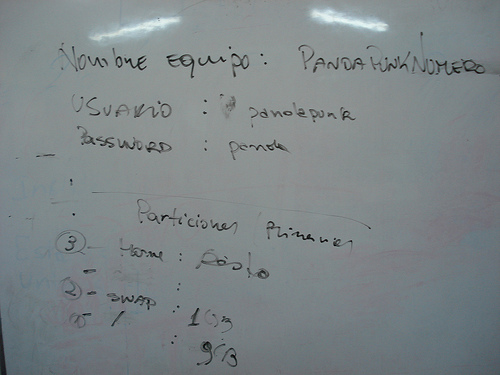 Nombre equipo : PANDAPUNKNUMERO
USUARIO : pandapunk
PASSWORD : panda
Particiones Primarias
③- Home : Resto
②- SWAP :
/ 1GB
: 9GB